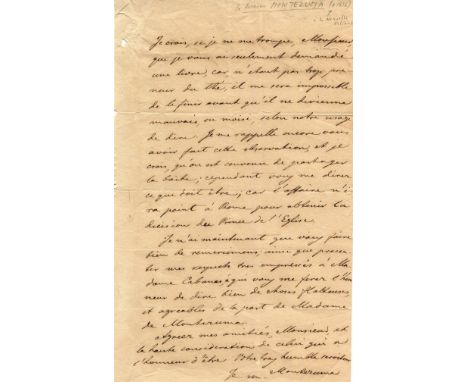 MONTEZUMA
Je crois, si je ne me trompe, Monsieur,
que je vous ai seulement demandé
une livre, car n'étant pas trop pre-
neur du thé, il me sera impossible
de le finir avant qu'il ne devienne
mauvais, ou moisi, selon notre usage
de dire. Je me rappelle encore vous
avoir fait cette observation, et je
crois, qu'on est convenu de partager
la boite; cependant vous me direz
ce que doit être; car l'affaire n'i-
ra point à Rome pour obtenir la
décision des Princes de l'Eglise.
Je n'ai maintenant que vous faire
bien de remerciemens, ainsi que presen-
ter mes respects très empressés à Ma
dame Cabanas que vous me ferez l'hon
neur de dire bien de choses flatteuses,
et agréables de la part de Madame
de Montezuma.
Agréez mes amitiés, Monsieur, et
la haute considération de celui qui a
l'honneur d'être Votre très humble serviteur
J. M. Montezuma